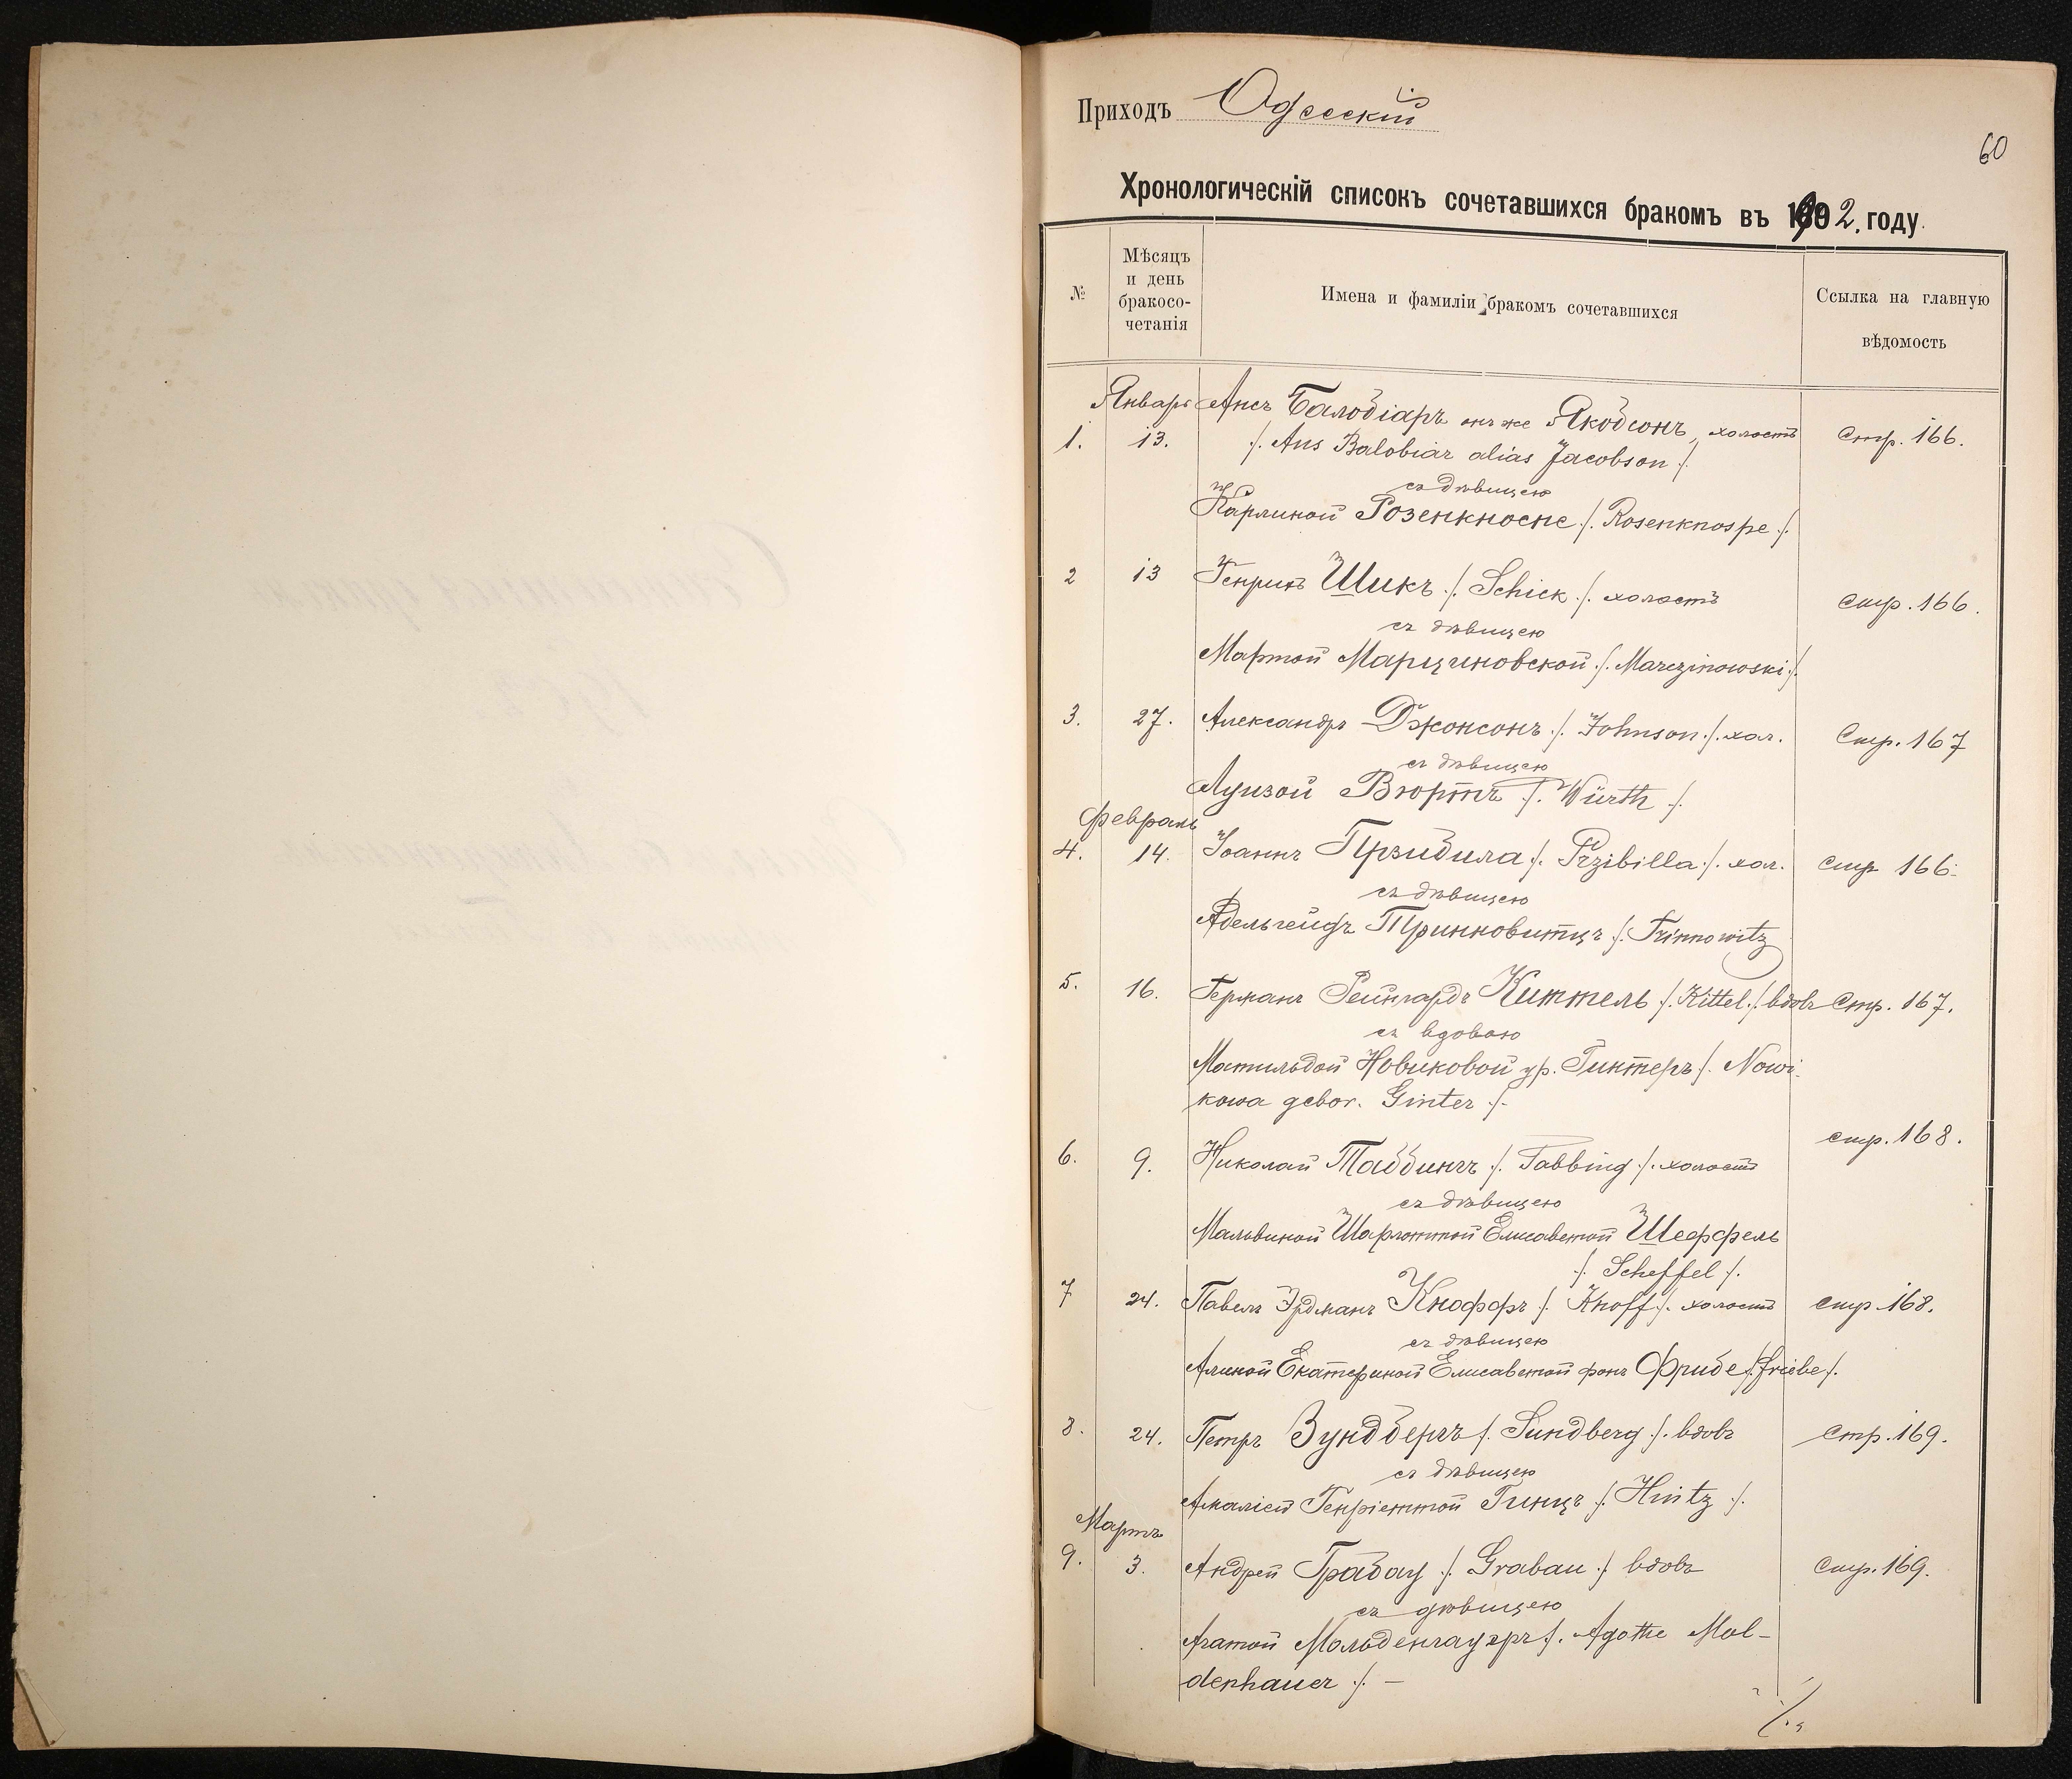 Приходъ Одесскій
60
Хронологическій списокъ сочетавшихся бракомъ въ 1902. году.
№
Мѣсяцъ
и день
бракосо-
четанія
Имена и фамиліи бракомъ сочетавшихся
Ссылка на главную
вѣдомость
Январь Ансъ Балобіаръ онъ же Якобсонъ, холостъ
1. 13. /. Ans Balobiar alias Jacobson /. Стр. 166.
съ дѣвицею
Карлиной Розенкноспе /. Rosenknospe /.
2 13 Генрихъ Шикъ /. Schick /. холостъ стр. 166.
съ дѣвицею
Мартой Марциновской /. Marczinowski /.
3. 27. Александръ Джонсонъ /. Johnson /. хол. Стр. 167
съ дѣвицею
Луизой Вюртъ /. Würth /.
Февраль
4. 14. Іоаннъ Прзибила /. Przibilla /. хол. стр 166.
съ дѣвицею
Адельгейдъ Тринновитцъ /. Trinnowitz
5. 16. Германъ Рейнгардъ Киттель /. Kittel /. вдовъ Стр. 167.
съ вдовою
Матильдой Новиковой ур. Гинтеръ /. Nowi-
kowa gebor. Ginter /.
6. 9. Николай Таббингъ /. Tabbing /. холостъ стр. 168.
съ дѣвицею
Мальвиной Шарлоттой Елисаветой Шеффель
/. Scheffel /.
7 24. Павелъ Эрдманъ Кноффъ /. Knoff /. холостъ стр. 168.
съ дѣвицею
Алиной Екатериной Елисаветой фонъ Фрибе /. Friebe /.
8. 24. Петръ Зундбергъ /. Sundberg /. вдовъ Стр. 169.
съ дѣвицею
Амаліей Генріеттой Гинцъ /. Hintz /.
Мартъ
9. 3. Андрей Грабау /. Grabau /. вдовъ Стр. 169.
съ дѣвицею
Агатой Мольденгауэръ /. Agathe Mol-
denhauer /. –